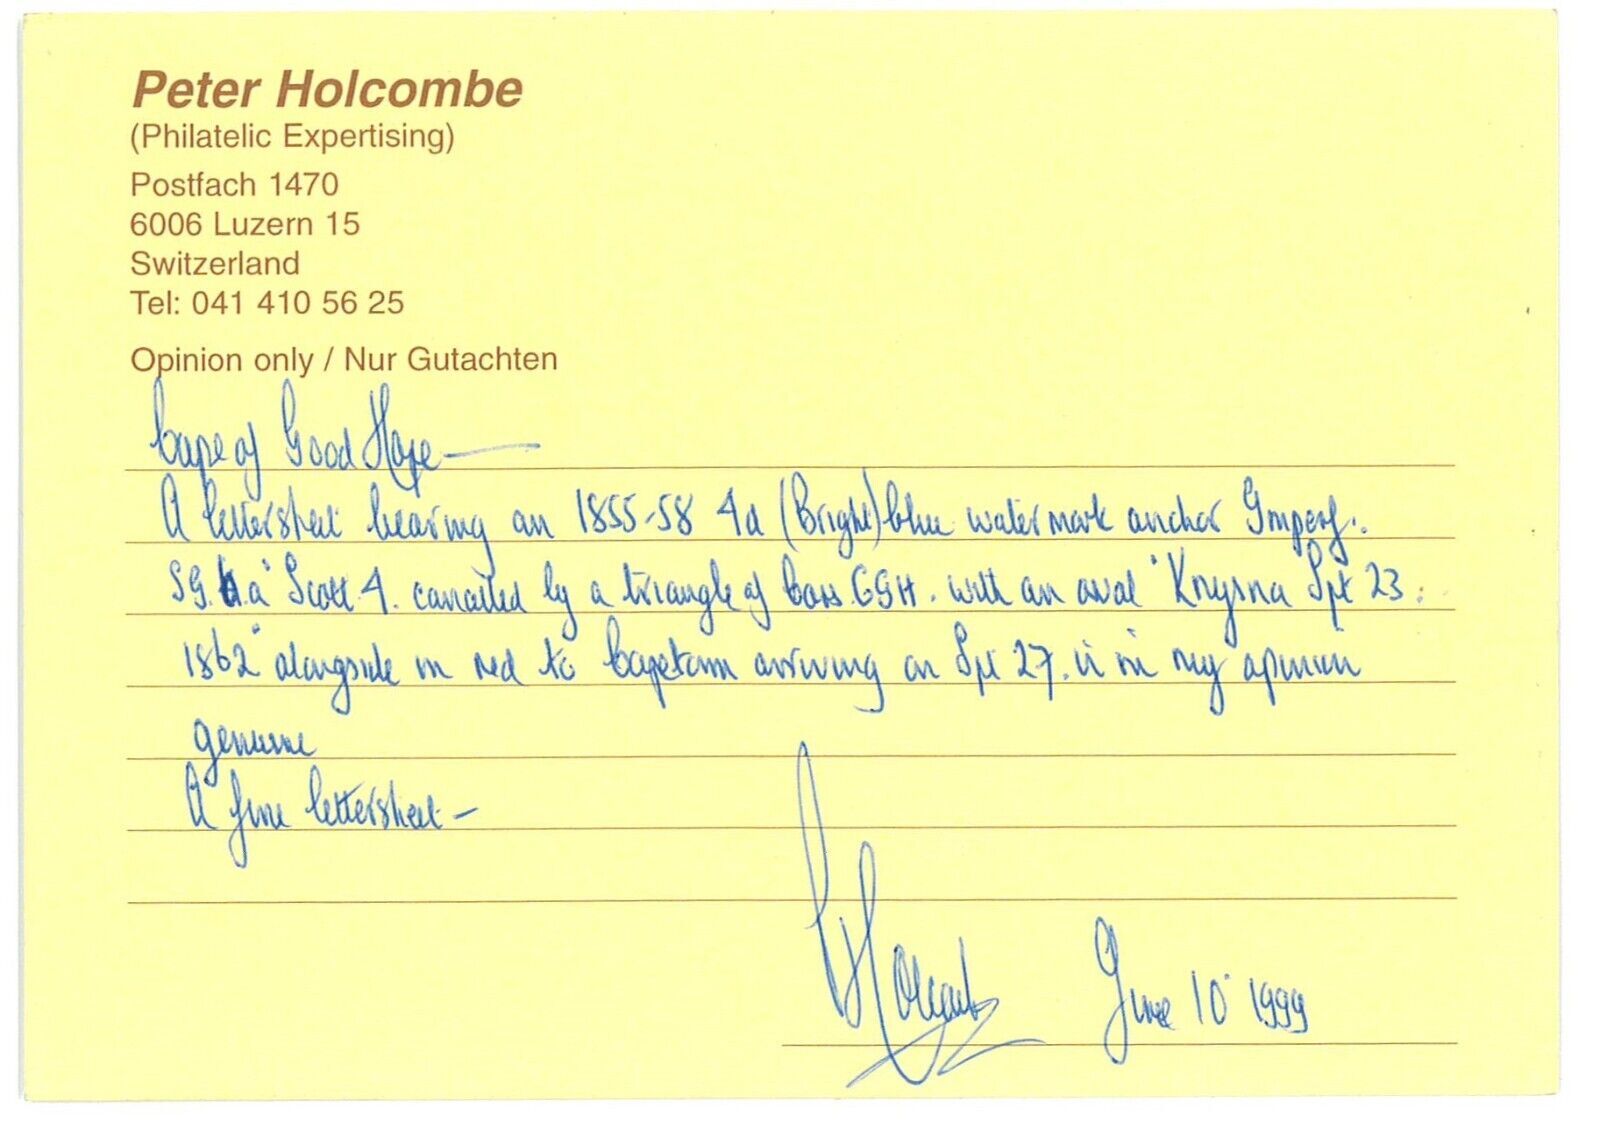 Peter Holcombe
(Philatelic Expertising)
Postfach 1470
6006 Luzern 15
Switzerland
Tel: 041 410 56 25
Opinion only / Nur Gutachten
Cape of Good Hope —
A lettersheet bearing an 1855-58 4d (Bright) blue watermark anchor Imperf.
SG. a Scott 4. cancelled by a triangle of bars CGH. with an oval "Knysna Spt 23.
1862" alongside in red to Capetown arriving on Spt 27. is in my opinion
genuine
A fine lettersheet —
Holcombe June 10 1999